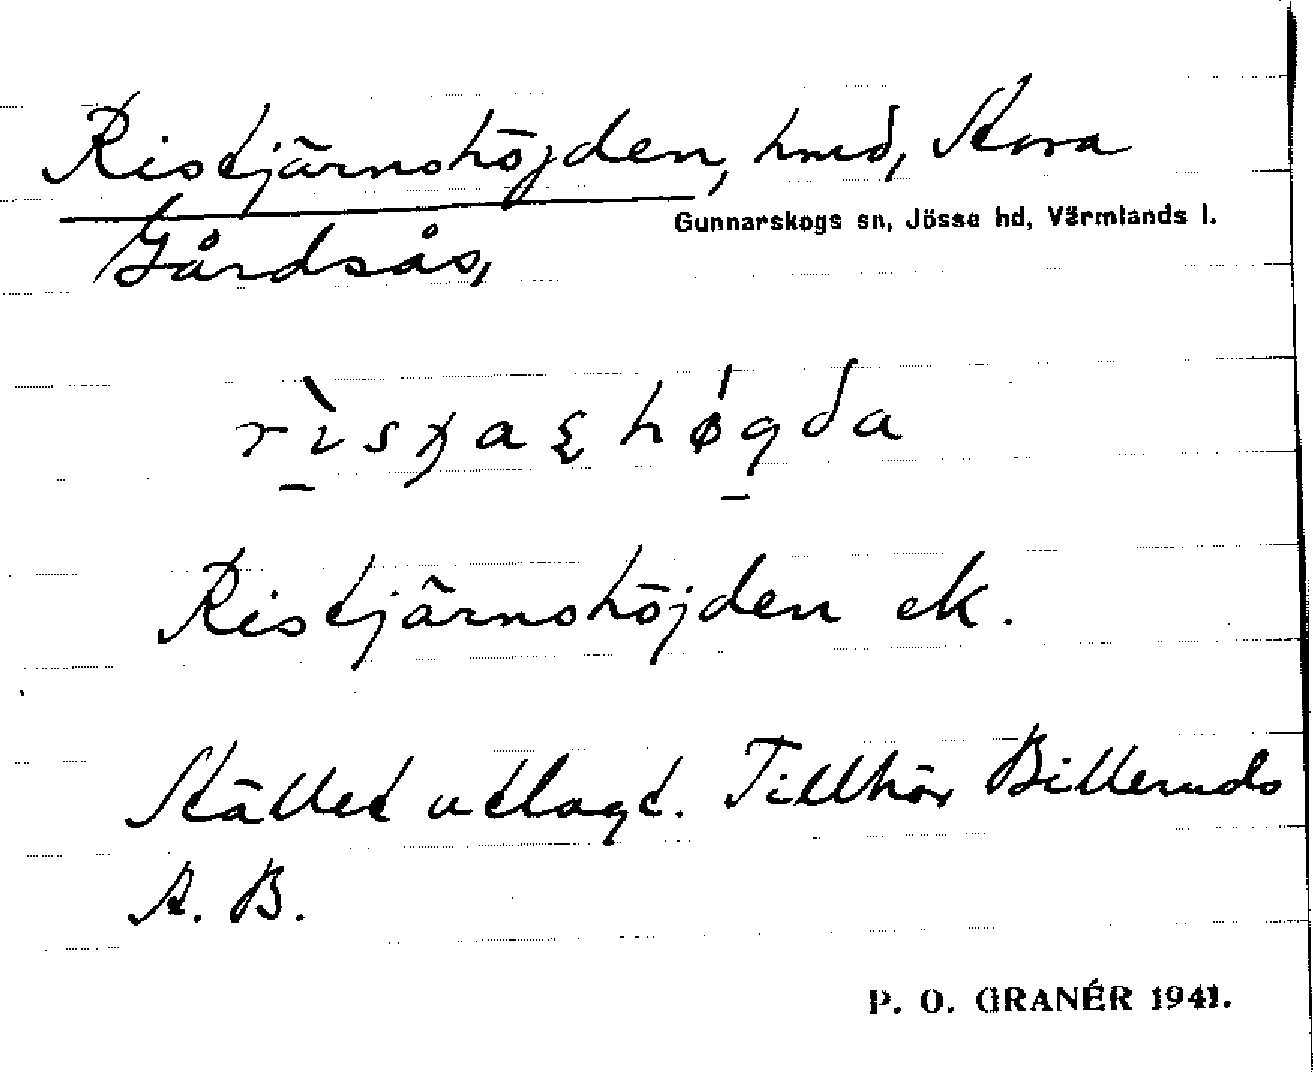 Ristjärnshöjden, hmd, Stora
Gunnarskogs sn, Jösse hd, Värmlands l.
Gårdsås,
Ristjärnshöjden ek.
Stället utlagt. Tillhör Billeruds
A. B.
P. O. GRANÉR 1941.